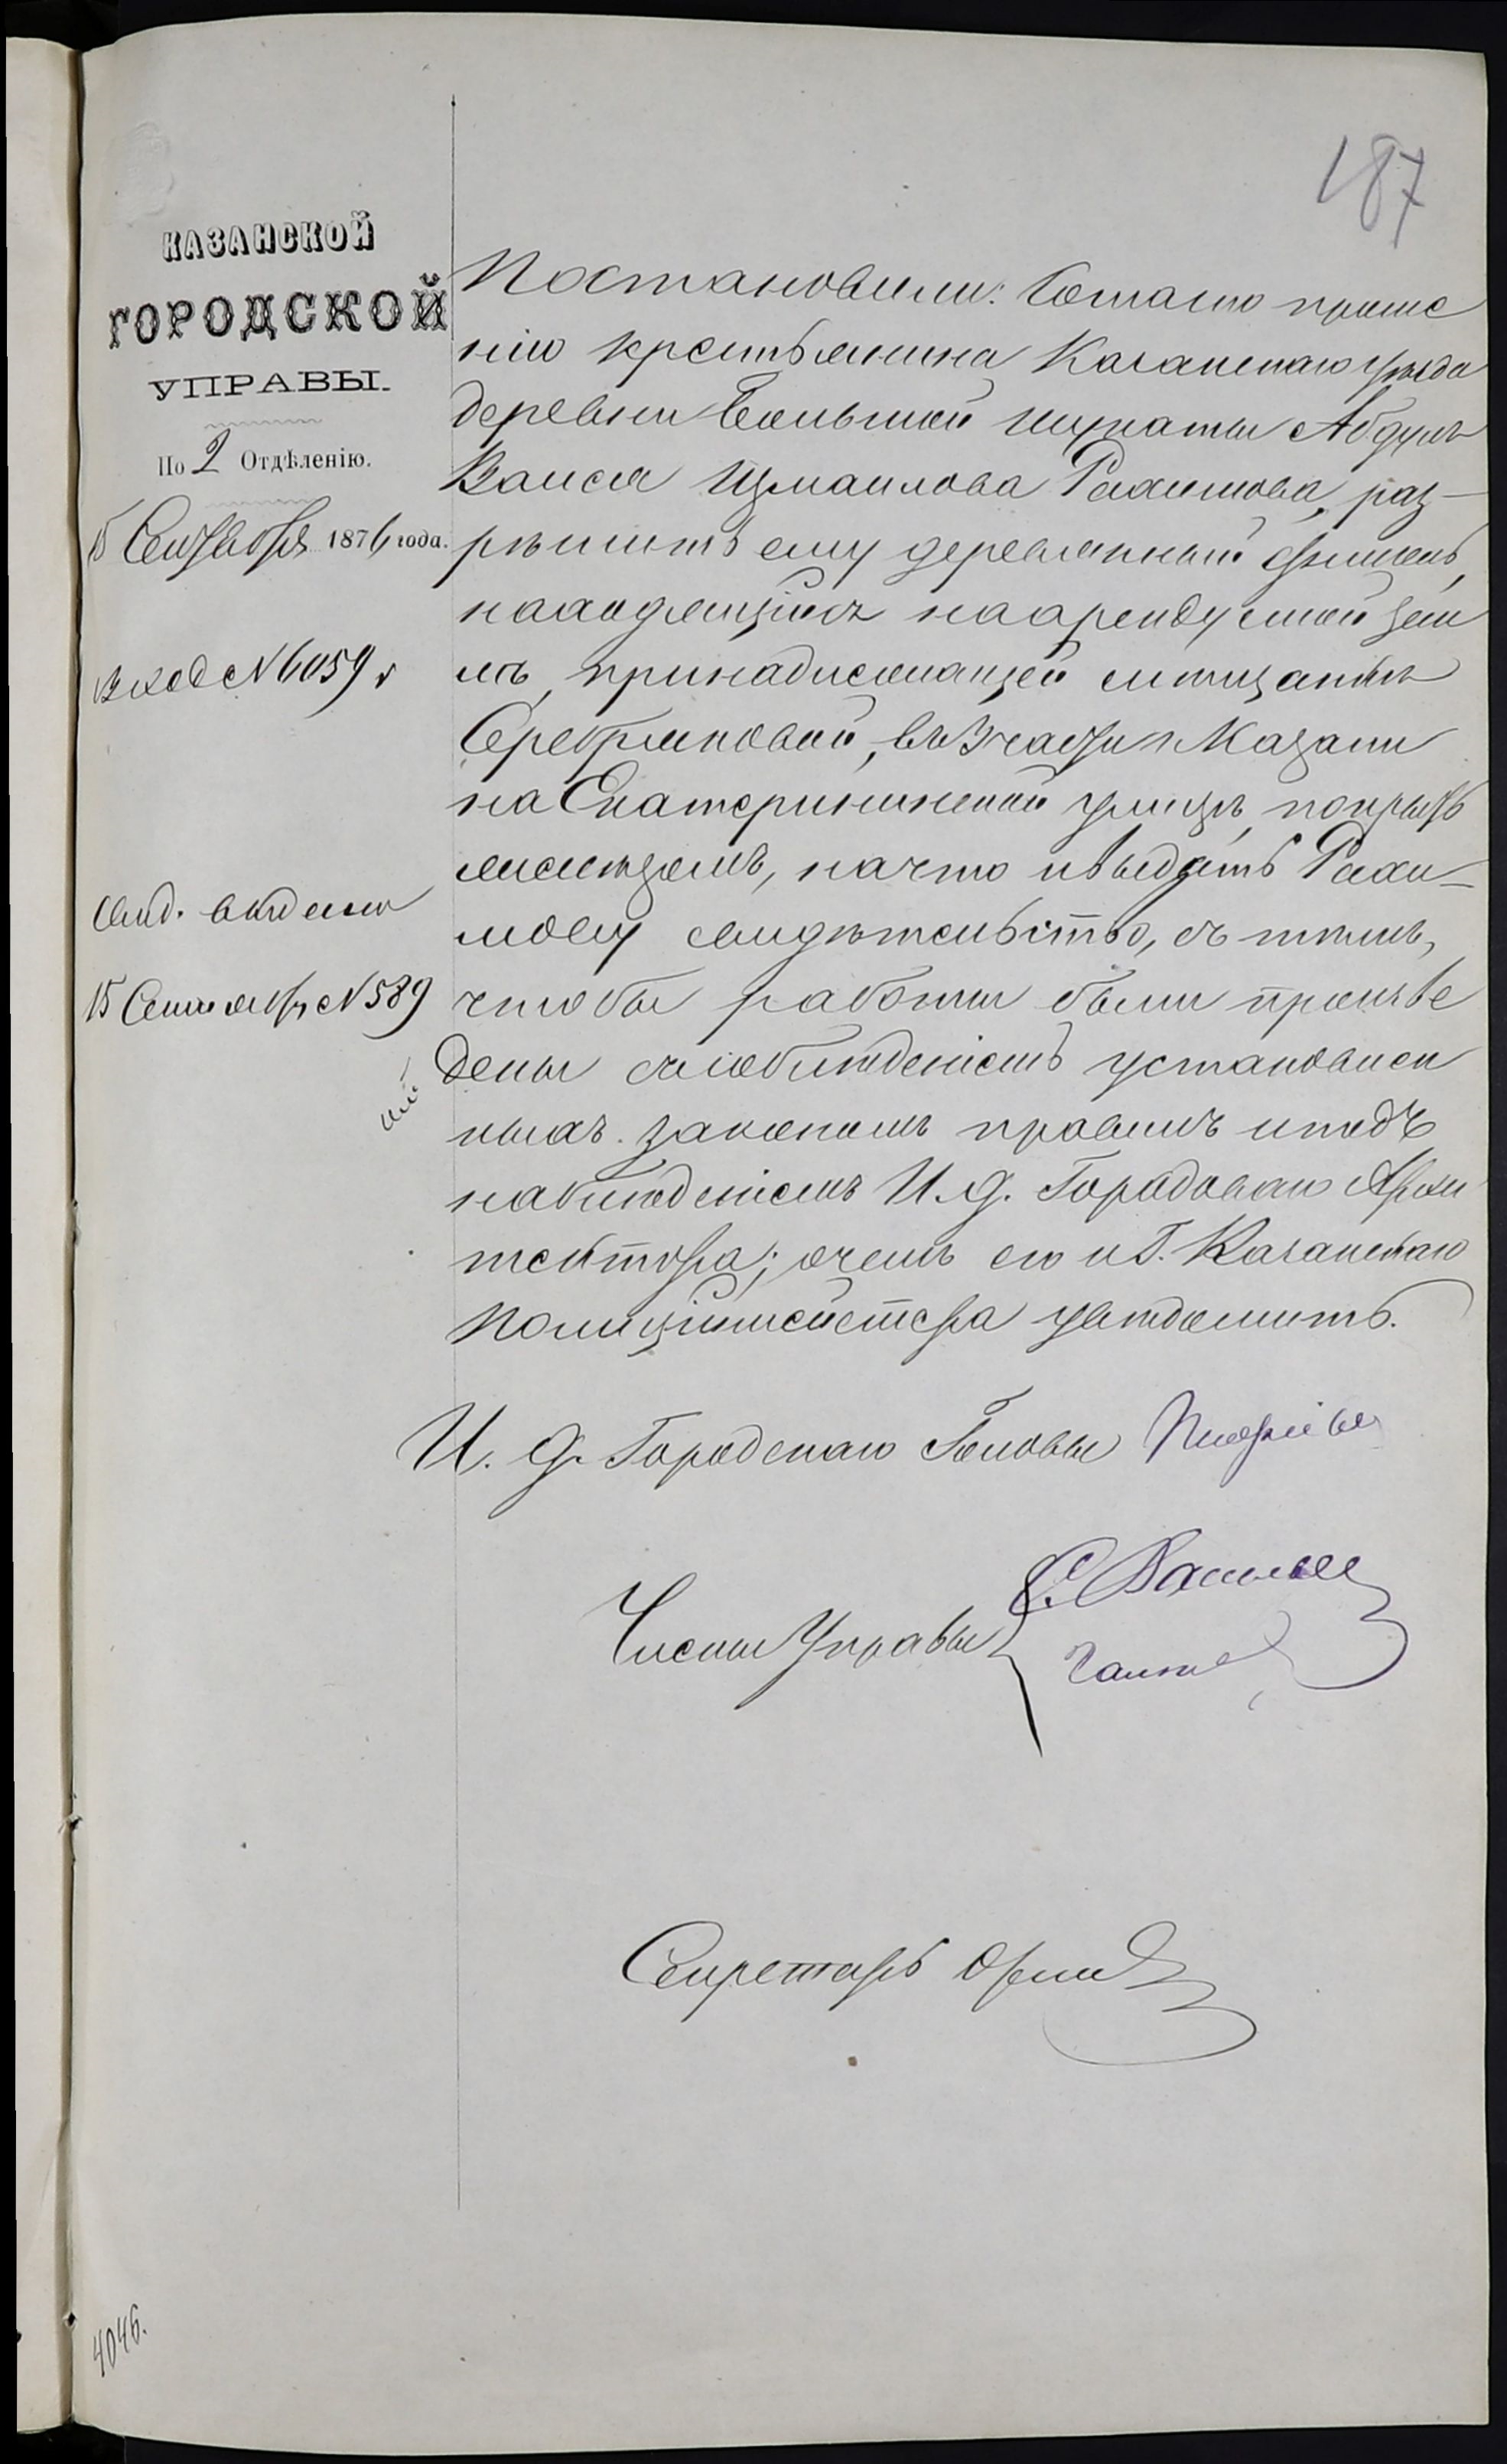 187
КАЗАНСКОЙ
ГОРОДСКОЙ
УПРАВЫ.
По 2 Отдѣленію.
15 Сентября 1876 года.
Вход № 6059
Свид. выдано
15 Сентября № 589
Постановили: Согласно проше
нію крестьянина Казанскаго уѣзда
деревни Большой Абдулъ
Ваиса Измаилова Рахимова, раз-
рѣшить ему деревянный флигель,
находящійся на арендуемой зем
лѣ, принадлежащей мѣщанкѣ
Серебряковой, въ 3 части г. Казани
на Екатерининской улицѣ, покрыть
желѣзомъ, на что и выдать Рахи-
мову свидѣтельство, съ тѣмъ,
чтобы работы были произве
дены съ соблюденіемъ установлен
ныхъ закономъ правилъ и подъ
наблюденіемъ И. д. Городоваго Архи
тектора; о чемъ его и Г. Казанскаго
Полиціймейстера увѣдомить.
И. д. Городскаго Головы
Члены Управы
С. Васильев
Секретарь
4046.